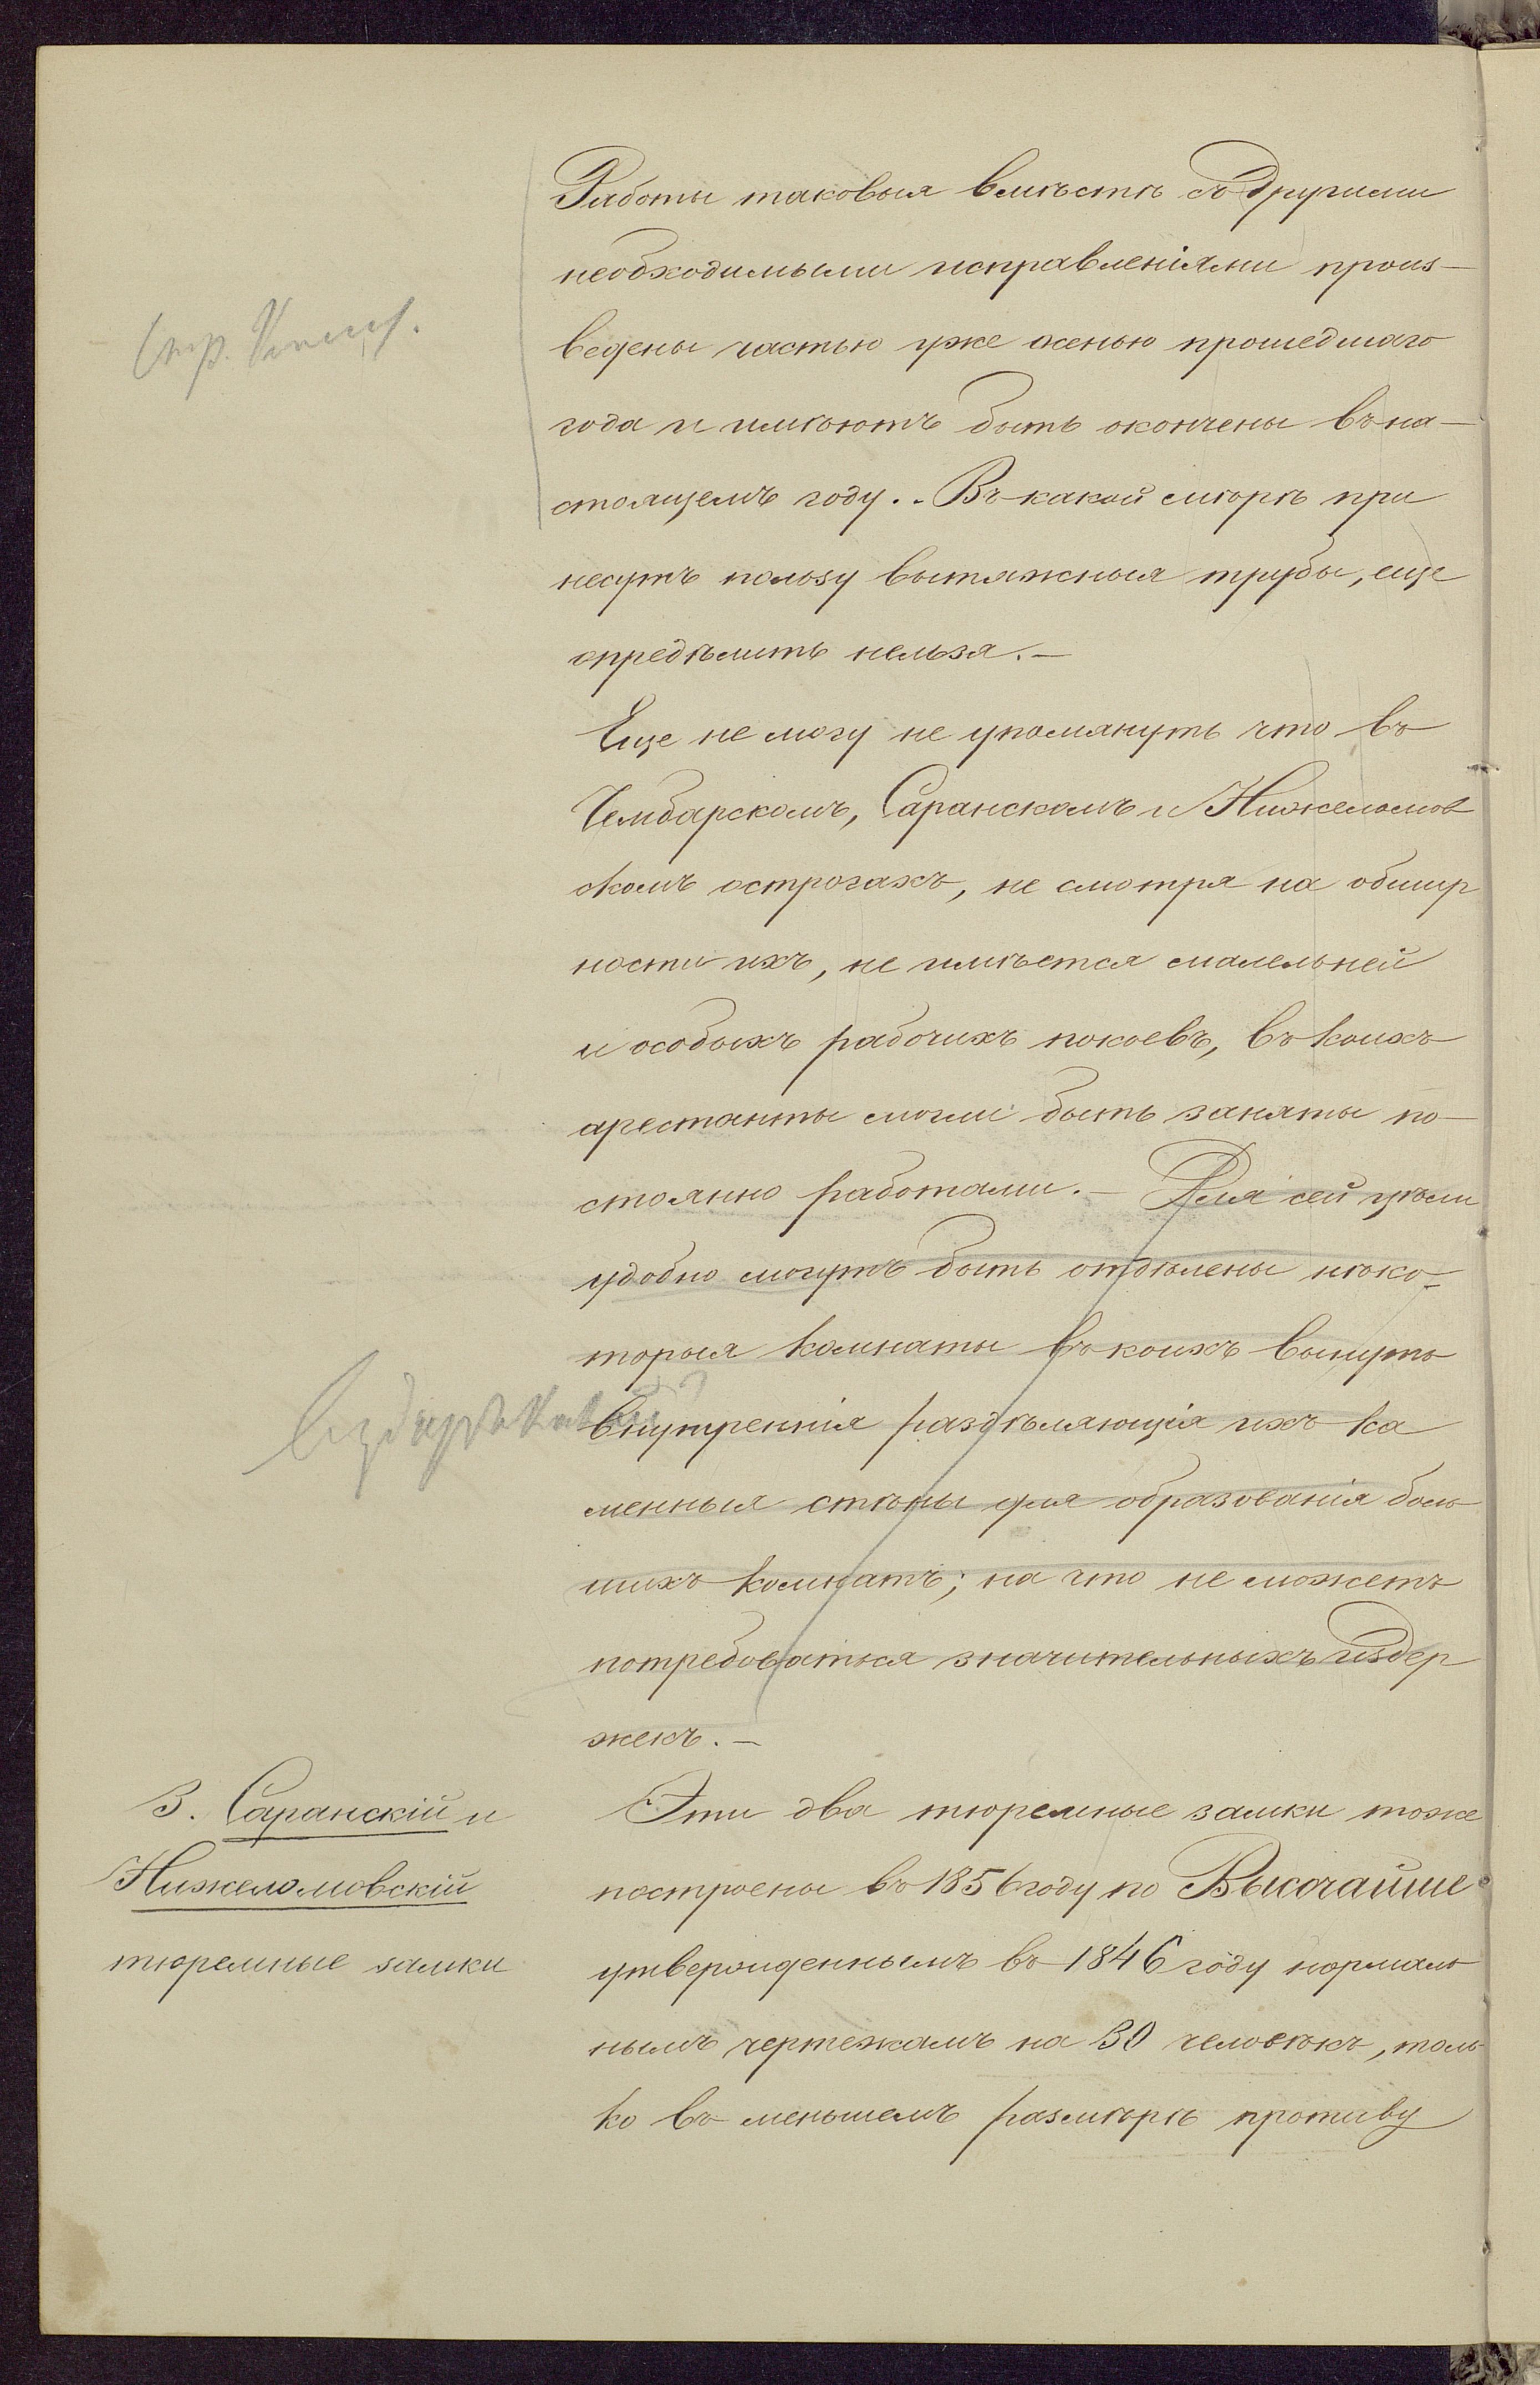 Работы таковыя вмѣстѣ съ другими
необходимыми исправленіями произ-
ведены частью уже осенью прошедшаго
Стр. 
года и имѣютъ быть окончены въ на-
стоящемъ году.. Въ какой мѣрѣ при
несутъ пользу вытяжныя трубы, еще
опредѣлить нельзя.-
Еще не могу не упомянуть что въ
Чембарскомъ, Саранскомъ и Нижеломов
скомъ острогахъ, не смотря на обшир
ности ихъ, не имѣется малельней
и особыхъ рабочихъ покоевъ, въ коихъ
арестанты могли быть заняты по-
стоянно работами.- Для сей цѣли
удобно могутъ быть отдѣлены нѣко-
торыя комнаты въ коихъ вынуть
внутреннія раздѣляющія ихъ ка
менныя стѣны для образованія боль
шихъ комнатъ; на что не можетъ
потребоваться значительныхъ издер
жекъ.-
3. Саранскій и
Нижеломовскій
тюремные замки
Эти два тюремные замки тоже
построены въ 1856 году по Высочайше
утвержденнымъ въ 1846 году нормаль
нымъ чертежамъ на 30 человѣкъ, толь
ко въ меньшемъ размѣрѣ противу